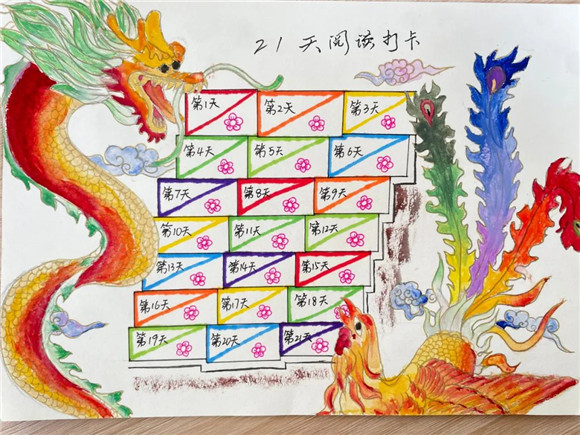 21天阅读打卡
第1天 第2天 第3天
第4天 第5天 第6天
第7天 第8天 第9天
第10天 第11天 第12天
第13天 第14天 第15天
第16天 第17天 第18天
第19天 第20天 第21天